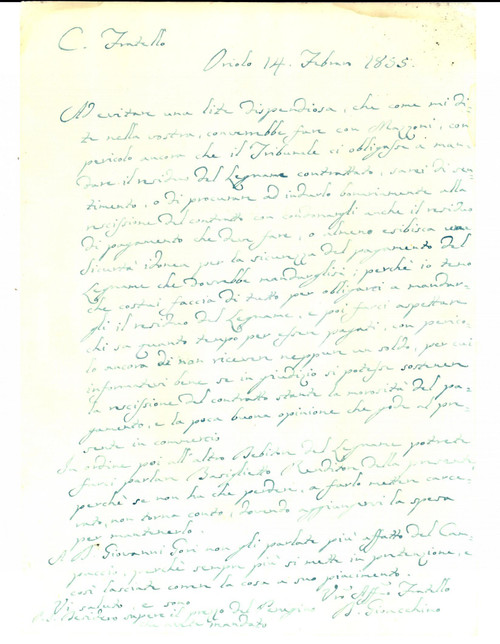 C. Fratello
Oriolo 14. Febrar 1835.
Ad evitare una lite dispendiosa, che come mi di-
te nella vostra, converrebbe fare con Mazzoni, con
pericolo ancora che il Tribunale ci obligasse a man-
dare il residuo del Legname contrattato, sarei di sen-
timento, o di procurare ad indurlo bonariamente alla
rescissione del contratto con anche il residuo
di pagamento che deve fare, o almeno esibisca una
Sicurtà idonea per la sicurezza del pagamento del
Legname che dovrebbe mandarglisi; perchè io temo
che costui faccia di tutto per obligarci a mandar-
gli il residuo del Legname, e poi farci aspettare
chi sa quanto tempo per essere pagati, con perico-
lo ancora di non ricevere neppure un soldo, per cui
informatevi bene se in giudizio si potesse sostenere
la rescissione del contratto stante la morosità del pa-
gamento, e la poca buona opinione che gode al pre-
sente in commercio
In ordine poi all'altro Debitore del Legname potrete
farci parlare Latore della presente
perchè se non ha che perdere, a farlo metter carce-
rato, non torna conto, dovendo aggiungervi la spesa
per mantenerlo.
A D. Giovanni Goni non gli parlate più affatto del
perchè sempre più si mette in pretenzione, e
così lasciate correr la cosa a suo piacimento.
Vi saluto, e sono
Vro Affmo Fratello
D. Gioacchino
sapere il prezzo del
mandato